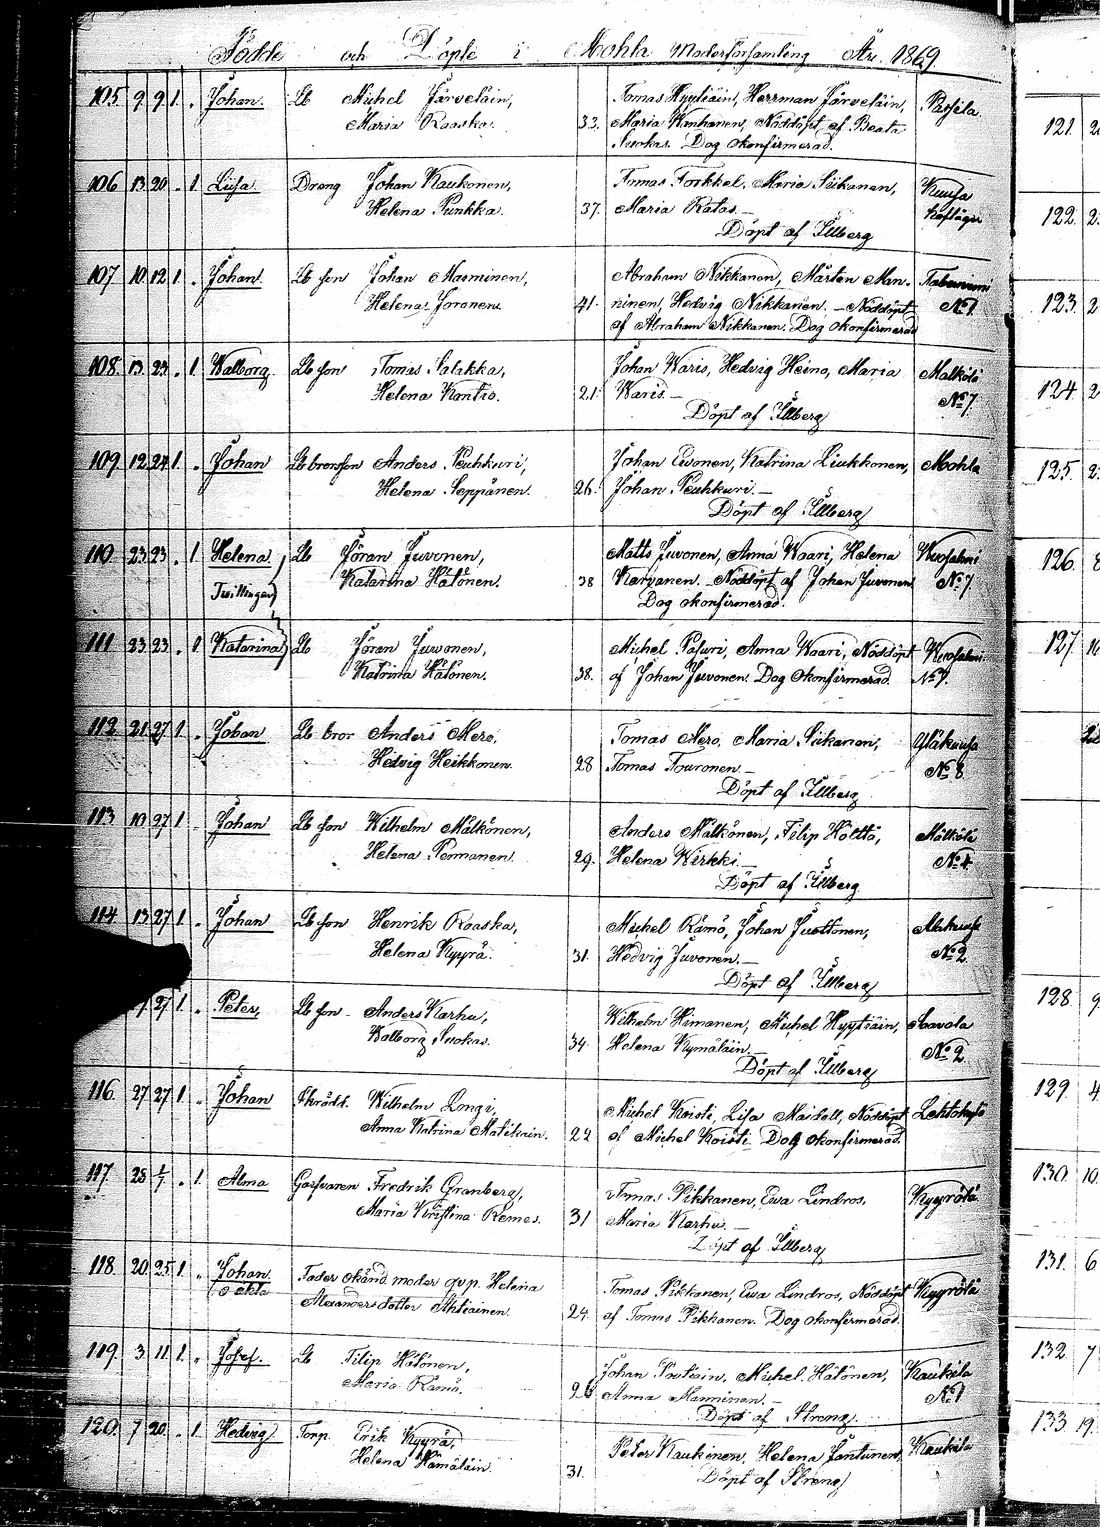 Födde och Döpte i Mohla Moderförsamling År 1869
105 9 9 1 . Johan. Lb Michel Järveläin, Tomas Hyytiäin, Herrman Järveläin,
Maria Raaska. 33. Maria Kanhanen, Nöddöpt af Beata
Suokas. Dog okonfirmerad.
106 13 20 . 1 Liisa. Dreng Johan Kaukonen, Tomas Torkkel, Maria Siikanen, Kuusa
Helena Punkka. 37. Maria Ratas.—
Döpt af Illberg
107 10 12 1 . Johan. Lb son Johan Manninen, Abraham Nikkanen, Mårten Man-
Helena Joronen. 41. ninen, Hedvig Nikkanen. — Nöddöpt № 1
af Abraham Nikkanen. Dog okonfirmerad
108. 13. 23. . 1 Walborg. Lb son Tomas Salakka, Johan Waris, Hedvig Heino, Maria Mälkölä
Helena Kontio. 21. Waris.— № 7.
Döpt af Illberg
109 12 24 1. . Johan Lb brorson Anders Peuhkuri, Johan Evonen, Katrina Liukkonen, Mohla
Helena Seppänen. 26. Johan Peuhkuri.—
Döpt af Illberg
110 23 23 . 1 Helena Lb Jöran Juvonen, Matts Juvonen, Anna Waari, Helena Kuosalmi
Tvillingar Katarina Hätönen. 38 Karvanen. Nöddöpt af Johan Juvonen № 7.
Dog okonfirmerad.
111 23 23 . 1 Katarina Lb Jöran Juvonen, Michel Pasuri, Anna Waari, Nöddöpt Kuosalmi
Katrina Hätönen. 38. af Johan Juvonen. Dog okonfirmerad. № 7.
112 21 27 1 . Johan Lb bror Anders Mero, Tomas Mero, Maria Siikanen, Yläkuusa
Hedvig Heikkonen. 28 Tomas Touronen.— № 8.
Döpt af Illberg
113 10 27 1 . Johan Lb son Wilhelm Mälkönen, Anders Mälkönen, Filip Hölttö, Mälkölä
Helena Pennanen. 29. Helena Kirkki.— № 4.
Döpt af Illberg
114 13 27 1 . Johan Lb son Henrik Raaska, Michel Rämö, Johan Juottonen, Alakuusa
Helena Kyyrä. 31. Hedvig Juvonen.— № 2.
Döpt af Illberg
7 27 1 . Peter, Lb son Anders Karhu, Wilhelm Himanen, Michel Hyytiäin, Saavola
Walborg Suokas. 34. Helena Kymäläin.— № 2.
Döpt af Illberg
116 27 27 1 . Johan Skrädd. Wilhelm Longi, Michel Koisti, Lisa Maidell, Nöddöpt Lehtokylä
Anna Katrina Matikain. 22 af Michel Koisti. Dog okonfirmerad.
117 28 1/7 . 1 Alma Garfvaren Fredrik Granberg, Tomas Pikkanen, Ewa Lindros, Kyyrölä
Maria Kristina Remes. 31 Maria Karhu.—
Döpt af Illberg
118 20 25 1 . Johan Fader okänd moder qvp. Helena Tomas Pikkanen, Ewa Lindros, Nöddöpt Kyyrölä
o äkta Alexandersdotter Ahtiainen. 24. af Tomas Pikkanen. Dog okonfirmerad.
119 3 11 1 . Josef. Lb Filip Hätönen, Johan Poutiain, Michel Hätönen, Kaukila
Maria Rämö. 26 Anna Manninen. № 1
Döpt af Streng.
120. 7 20 . 1 Hedvig Torp. Erik Kyyrä, Peter Kaukonen, Helena Jantunen, Kaukila
Helena Hämäläin. 31. Döpt af Streng
121.
122.
123.
124.
125.
126
127
128
129.
130.
131.
132
133